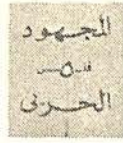 المجهود
-٥-
الحربى